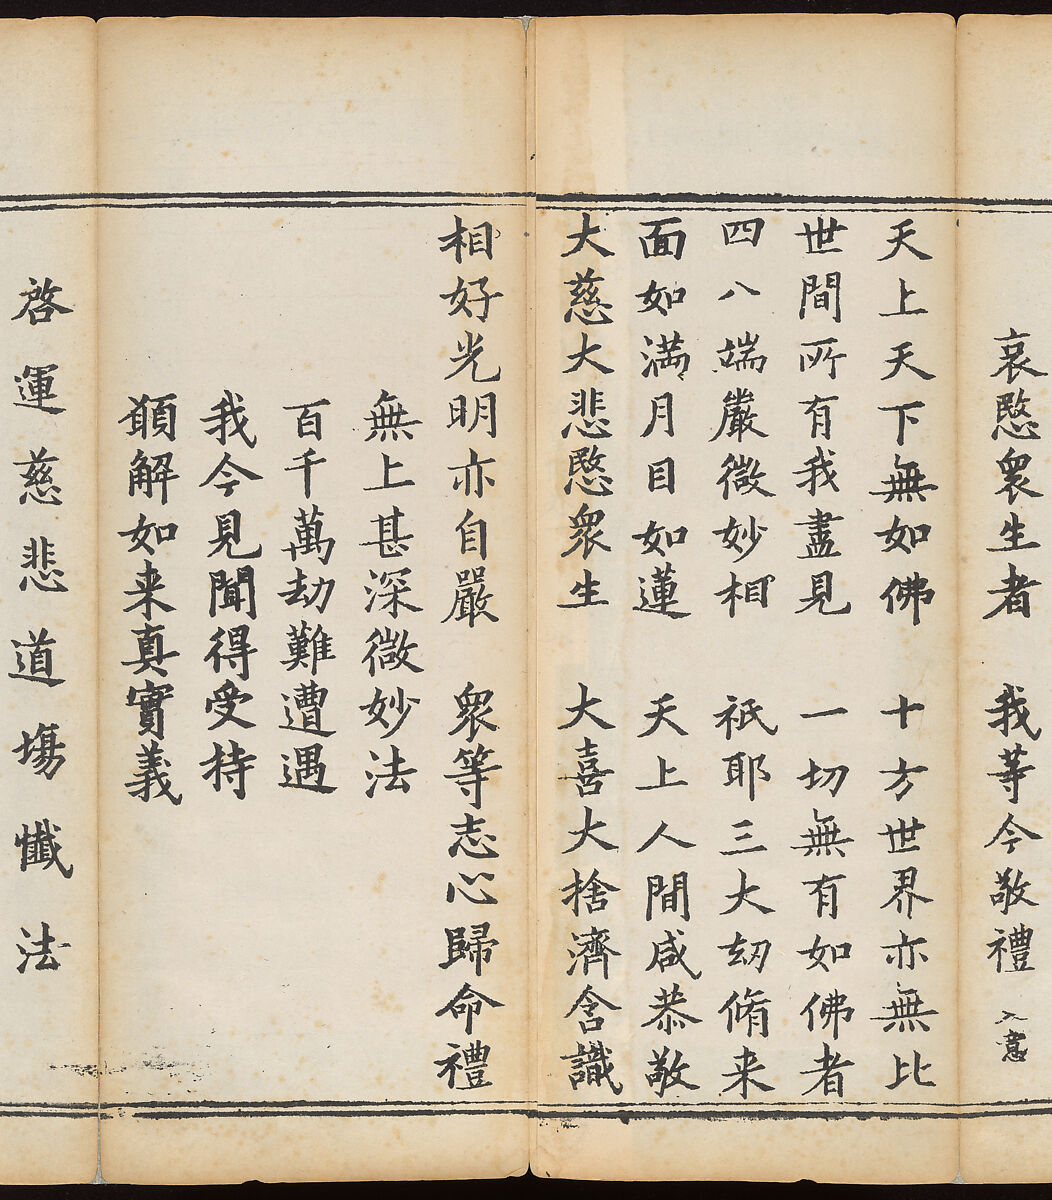 哀愍衆生者　我等今敬禮 入意
天上天下無如佛　十方世界亦無比
世間所有我盡見　一切無有如佛者
四八端嚴微妙相　祇耶三大劫脩来
面如满月目如蓮　天上人間咸恭敬
大慈大悲愍衆生　大喜大捨濟含識
相好光明亦自嚴　衆等志心歸命禮
無上甚深微妙法
百千萬劫難遭遇
我今見聞得受持
願解如来真實義
啓運慈悲道塲懺法